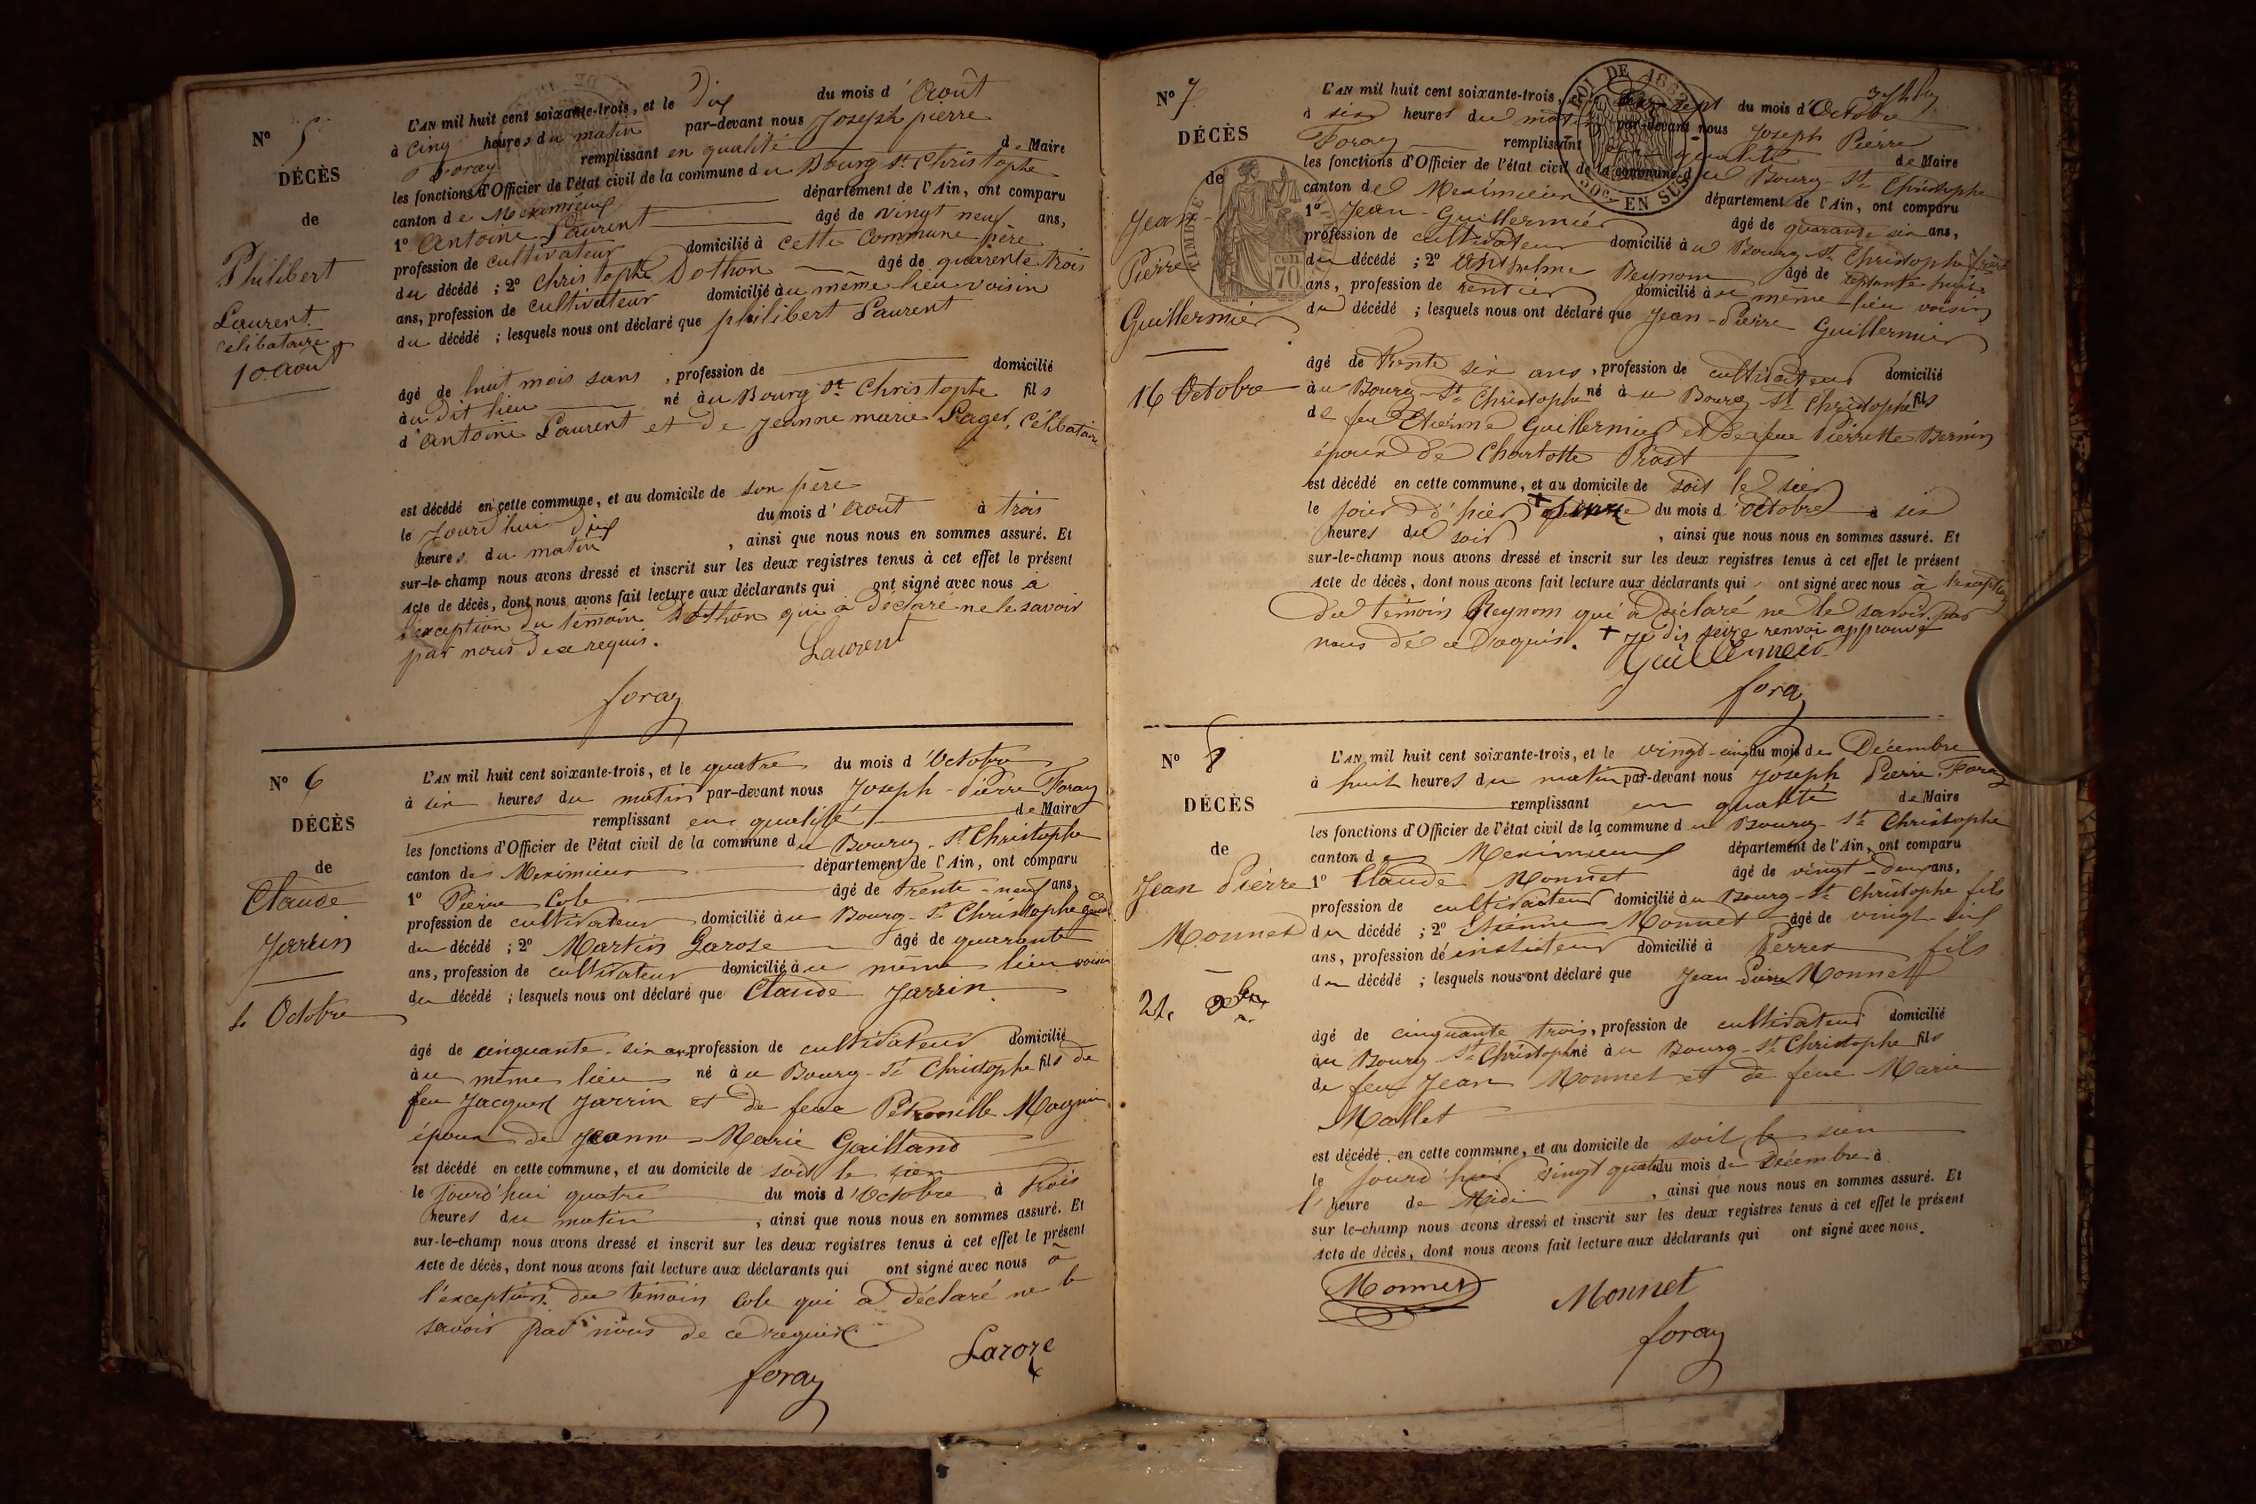 N° 5
DÉCÈS
de
Philibert
Laurent
célibataire
10 aout
L'AN mil huit cent soixante-trois, et le dix du mois d'Aout
à cinq heures du matin par-devant nous Joseph pierre
Foray remplissant en qualité de Maire
les fonctions d'Officier de l'état civil de la commune du Bourg St Christophe
canton de Meximieux département de l'Ain, ont comparu
1° Antoine Laurent âgé de vingt neuf ans,
profession de cultivateur domicilié à cette commune père
du décédé ; 2° Christophe Dothon âgé de quarente trois
ans, profession de cultivateur domicilié au même lieu voisin
du décédé ; lesquels nous ont déclaré que philibert Laurent
âgé de huit mois sans , profession de domicilié
au dit lieu né au Bourg St Christophe fils
d'Antoine Laurent et de Jeanne marie Pager, célibataire
est décédé en cette commune, et au domicile de son père
le jourd'hui dix du mois d'Aout à trois
heures du matin , ainsi que nous nous en sommes assuré. Et
sur-le-champ nous avons dressé et inscrit sur les deux registres tenus à cet effet le présent
Acte de décès, dont nous avons fait lecture aux déclarants qui ont signé avec nous à
l'exception du témoin Dothon qui à déclaré ne le savoir
par nous de ce requis.
Laurent
foray
N° 6
DÉCÈS
de
Claude
Jarrin
4 Octobre
L'AN mil huit cent soixante-trois, et le quatre du mois d'Octobre
à six heures du matin par-devant nous Joseph-Pierre Foray
remplissant en qualité de Maire
les fonctions d'Officier de l'état civil de la commune du Bourg-St Christophe
canton de Meximieux département de l'Ain, ont comparu
1° Pierre Cole âgé de trente-neuf ans,
profession de cultivateur domicilié au Bourg-St Christophe
du décédé ; 2° Martin Laroze âgé de quarante
ans, profession de cultivateur domicilié au même lieu voisin
du décédé ; lesquels nous ont déclaré que Claude Jarrin
âgé de cinquante-six ans profession de cultivateur domicilié
au même lieu né au Bourg-St Christophe fils de
feu Jacques Jarrin et de feue Pétronille Magnin
époux de Jeanne-Marie Gailland
est décédé en cette commune, et au domicile de soit le sien
le jourd'hui quatre du mois d'Octobre à trois
heures du matin , ainsi que nous nous en sommes assuré. Et
sur-le-champ nous avons dressé et inscrit sur les deux registres tenus à cet effet le présent
Acte de décès, dont nous avons fait lecture aux déclarants qui ont signé avec nous à
l'exception du témoin Cole qui à déclaré ne le
savoir par nous de ce requis
Laroze
foray
N° 7
DÉCÈS
de
Jean-
Pierre
Guillermier
16 Octobre
L'AN mil huit cent soixante-trois, dix-sept du mois d'Octobre
à six heures du matin par-devant nous Joseph Pierre
Foray remplissant en qualité de Maire
les fonctions d'Officier de l'état civil de la commune du Bourg-St Christophe
canton de Meximieux département de l'Ain, ont comparu
1° Jean-Guillermier âgé de quarante six ans,
profession de cultivateur domicilié au Bourg-St Christophe frère
du décédé ; 2° Anthelme Reynom âgé de septante huit
ans, profession de rentier domicilié au même lieu voisin
du décédé ; lesquels nous ont déclaré que Jean-Pierre Guillermier
âgé de trente six ans, profession de cultivateur domicilié
au Bourg-St Christophe né au Bourg-St Christophe fils
de feu Etienne Guillermier et de feue Pierrette Bernin
époux de Charlotte Prost
est décédé en cette commune, et au domicile de soit le sien
le jour d'hier + du mois d'Octobre à six
heures du soir , ainsi que nous nous en sommes assuré. Et
sur-le-champ nous avons dressé et inscrit sur les deux registres tenus à cet effet le présent
Acte de décès, dont nous avons fait lecture aux déclarants qui ont signé avec nous à l'exception
du témoin Reynom qui à déclaré ne le savoir par
nous de ce requis. + je dis seize renvoi approuvé
Guillermier
foray
TIMBRE
70
LOI DE 1862
50c EN SUS
N° 8
DÉCÈS
de
Jean Pierre
Monnet
24 Xbre
L'AN mil huit cent soixante-trois, et le vingt-cinq du mois de Décembre
à huit heures du matin par-devant nous Joseph Pierre Foray
remplissant en qualité de Maire
les fonctions d'Officier de l'état civil de la commune du Bourg-St Christophe
canton de Meximieux département de l'Ain, ont comparu
1° Claude Monnet âgé de vingt-deux ans,
profession de cultivateur domicilié au Bourg-St Christophe fils
du décédé ; 2° Etienne Monnet âgé de vingt six
ans, profession de instituteur domicilié à Perrex fils
du décédé ; lesquels nous ont déclaré que Jean Pierre Monnet
âgé de cinquante trois, profession de cultivateur domicilié
au Bourg St Christophe né au Bourg-St Christophe fils
de feu Jean Monnet et de feue Marie
Mallet
est décédé en cette commune, et au domicile de soit le sien
le jourd'hui vingt quatre du mois de Décembre à
l'heure de Midi , ainsi que nous nous en sommes assuré. Et
sur le-champ nous avons dressé et inscrit sur les deux registres tenus à cet effet le présent
Acte de décès, dont nous avons fait lecture aux déclarants qui ont signé avec nous.
Monnet Monnet
foray